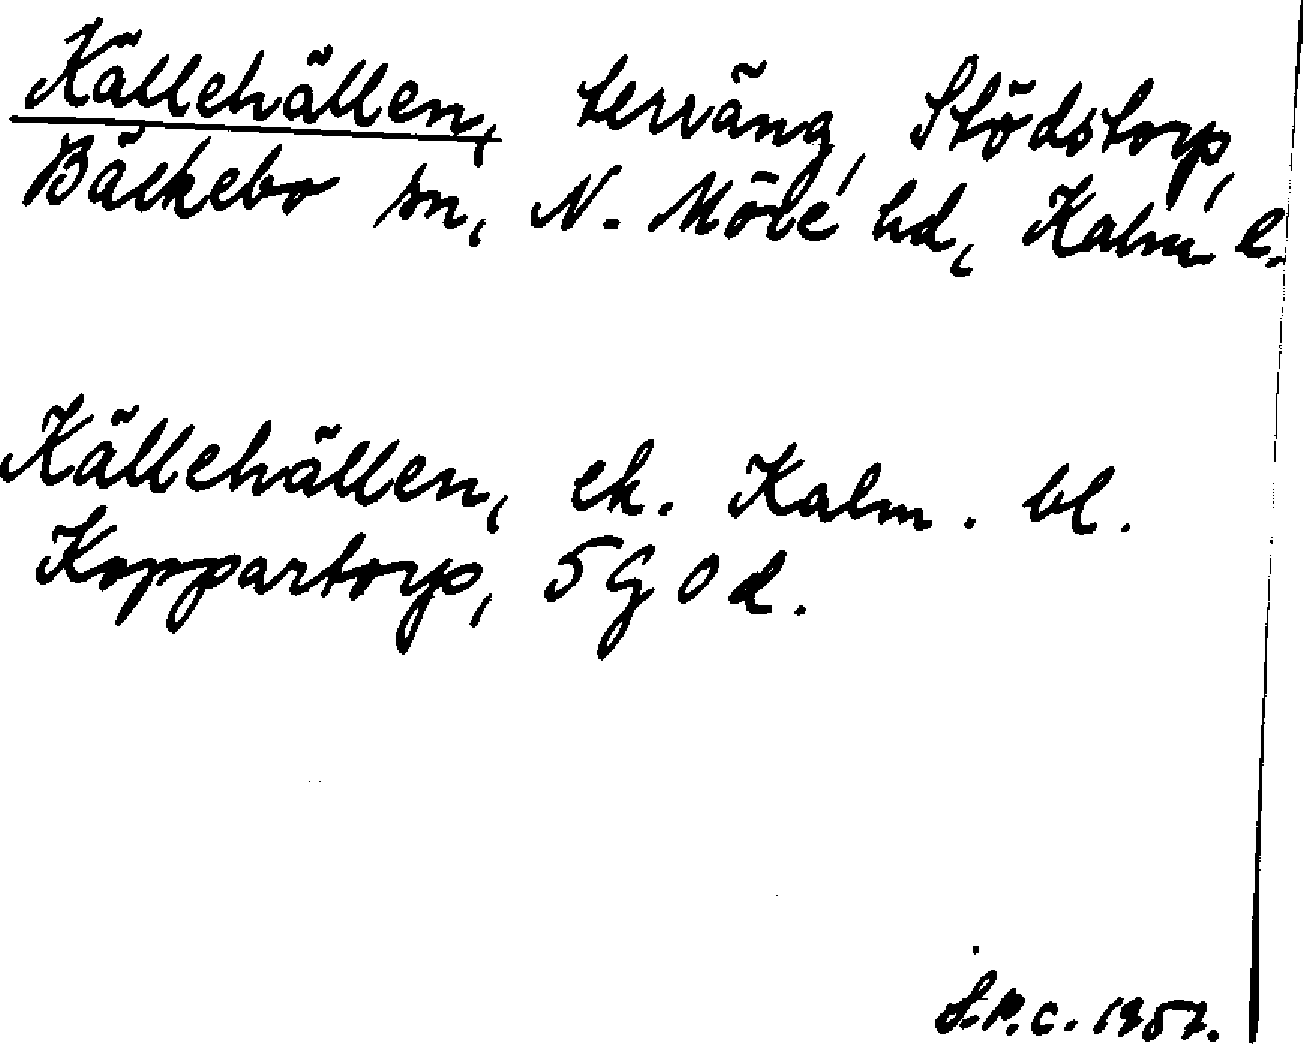 Källehällen, terräng, Stödstorp,
Bäckebo sn, N. Möre hd, Kalm l.
Källehällen, ek. Kalm. bl.
Koppartorp, 5 G 0 d.
S.P.C. 1957.